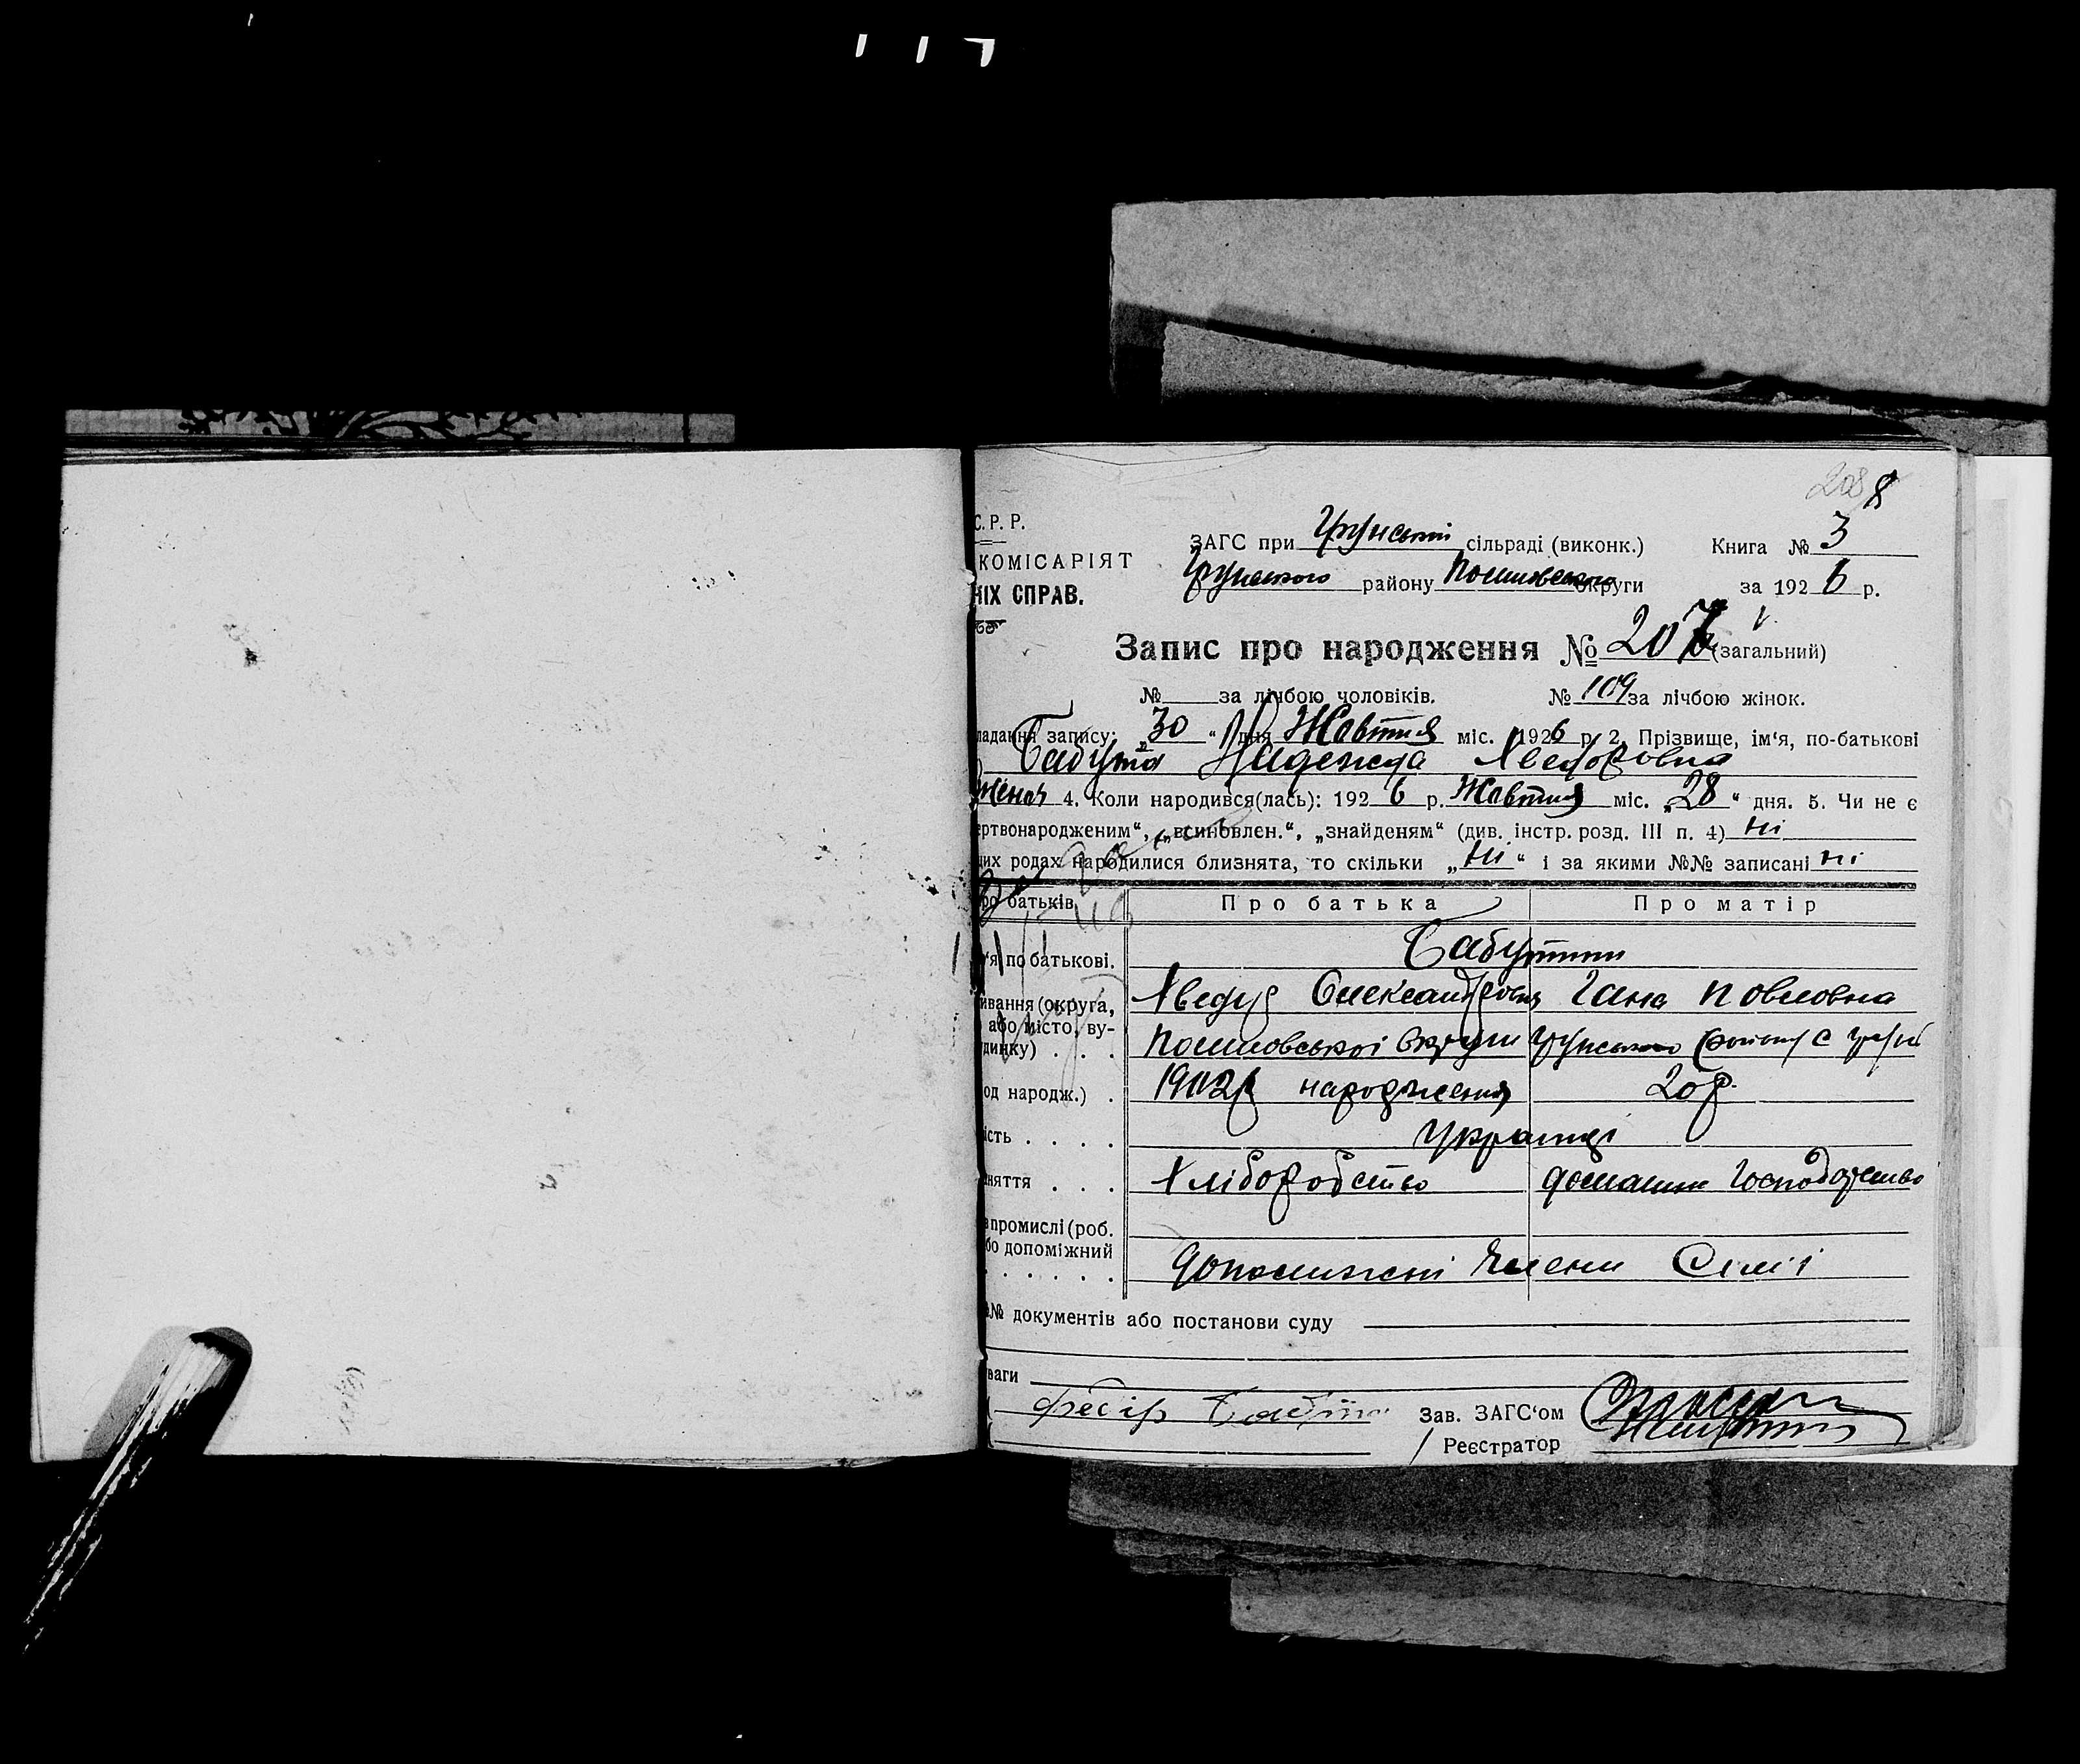 208 8
С. Р. Р.
КОМІСАРІЯТ
НІХ СПРАВ.
ЗАГС при Грунській сільраді (виконк.) Книга № 3
Грунського району округи за 1926 р.
Запис про народження № 207 (загальний)
№ за лічбою чоловіків. № 109 за лічбою жінок.
ладання запису: „30“ дня Жовтня міс. 1926 р. 2. Прізвище, ім‘я, по-батькові
Бабута Надежда Хведоровна
4. Коли народився(лась): 1926 р. Жовтня міс. „28“ дня. 5. Чи не є
ертвонародженим“, „всиновлен.“, „знайденям“ (див. інстр. розд. III п. 4) ні
цих родах народилися близнята, то скільки „ні“ і за якими №№ записані ні
ро батьків Про батька Про матір
‘я по батькові. Бабутини
ивання (округа, Хведир Олександрович Гана Повловна
або місто, ву-
динку) . . . округи Грунського району с
од народж.) . 1902р народження 20р.
ість . . . . Українці
няття . . . Хліборобство домашнє господарство
промислі (роб.
бо допоміжний
. . . . . . допомижні члени Сімї
№ документів або постанови суду
ваги
Федір Зав. ЗАГС‘ом
Реєстратор